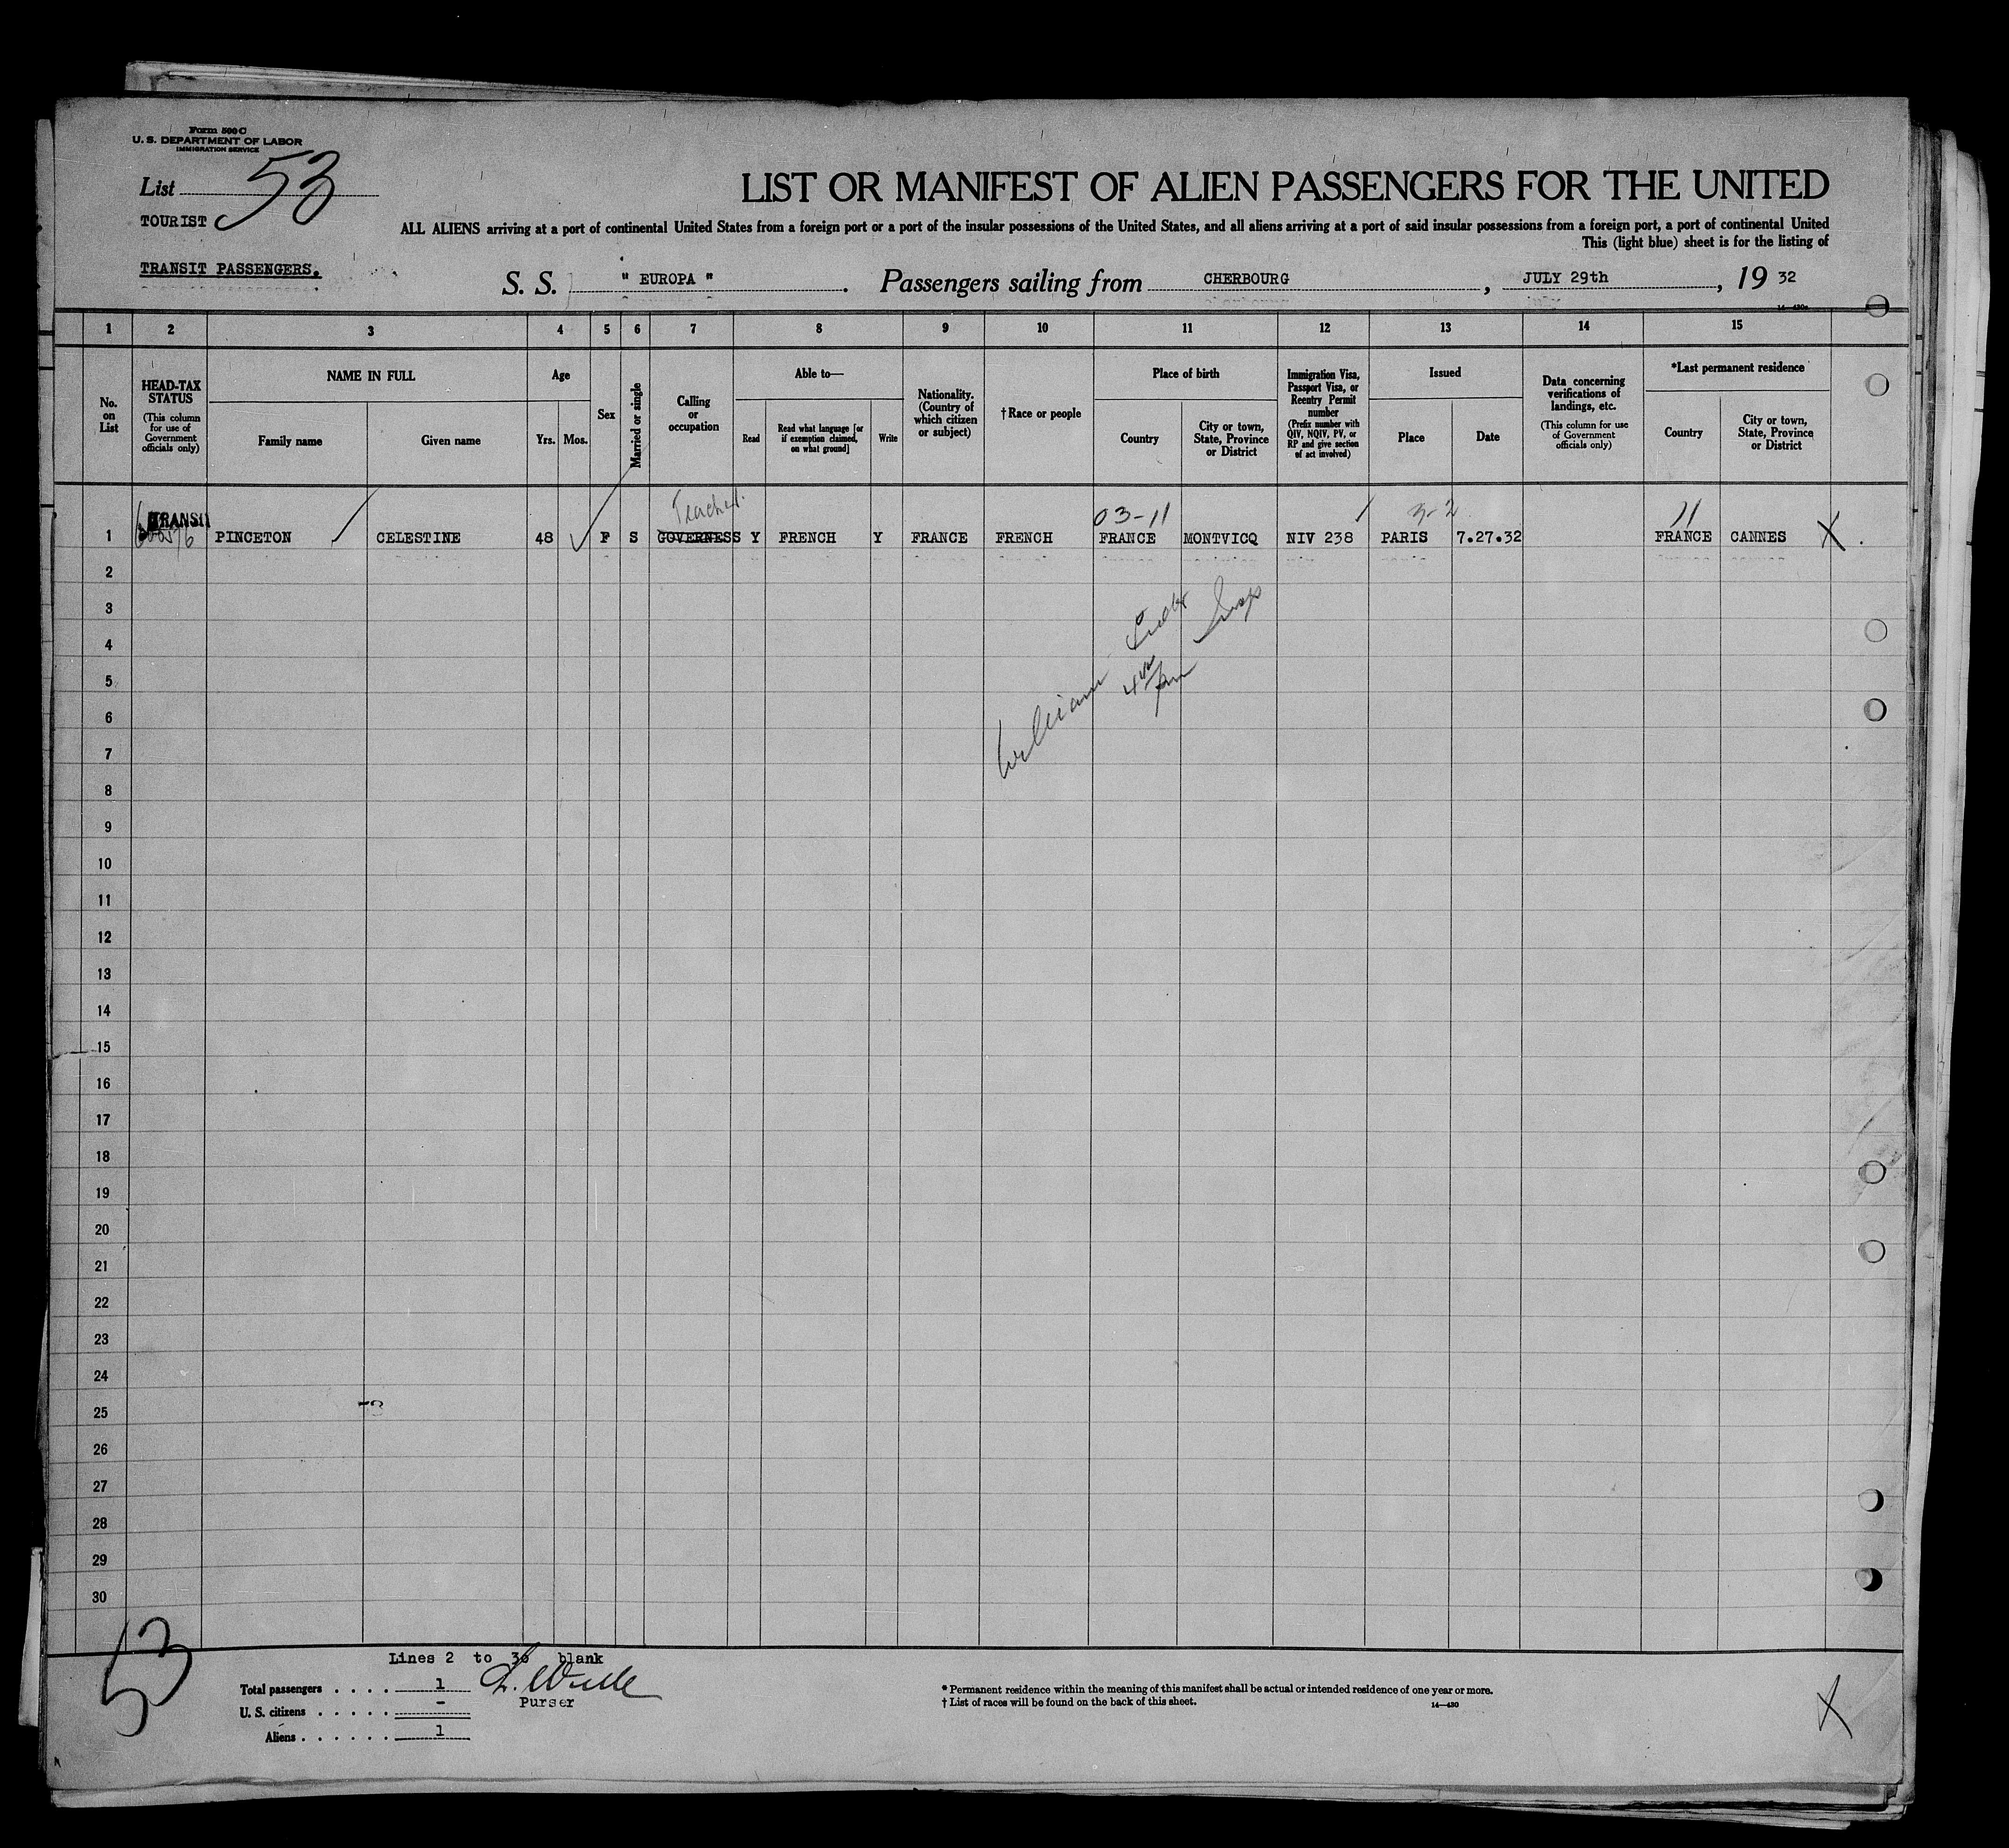 Form 500 C
U. S. DEPARTMENT OF LABOR
IMMIGRATION SERVICE
List 53
TOURIST
TRANSIT PASSENGERS.
LIST OR MANIFEST OF ALIEN PASSENGERS FOR THE UNITED
ALL ALIENS arriving at a port of continental United States from a foreign port or a port of the insular possessions of the United States, and all aliens arriving at a port of said insular possessions from a foreign port, a port of continental United
This (light blue) sheet is for the listing of
S. S. " EUROPA " . Passengers sailing from CHERBOURG , JULY 29th , 19 32
1 2 3 4 5 6 7 8 9 10 11 12 13 14 15
No. on List
HEAD-TAX STATUS
(This column for use of Government officials only)
NAME IN FULL
Family name Given name
Age
Yrs. Mos.
Sex
Married or single
Calling or occupation
Able to—
Read
Read what language [or if exemption claimed, on what ground]
Write
Nationality. (Country of which citizen or subject)
†Race or people
Place of birth
Country
City or town, State, Province or District
Immigration Visa, Passport Visa, or Reentry Permit number
(Prefix number with QIV, NQIV, PV, or RP and give section of act involved)
Issued
Place Date
Data concerning verifications of landings, etc.
(This column for use of Government officials only)
*Last permanent residence
Country
City or town, State, Province or District
TRANSIT Teacher. 03-11 3-2 11
1 PINCETON CELESTINE 48 F S GOVERNESS Y FRENCH Y FRANCE FRENCH FRANCE MONTVICQ NIV 238 PARIS 7.27.32 FRANCE CANNES X
2
3
4
5
6
7
8
9
10
11
12
13
14
15
16
17
18
19
20
21
22
23
24
25
26
27
28
29
30
William
Insp
53
Lines 2 to 30 blank
Total passengers . . . . 1
Purser
U. S. citizens . . . . . -
Aliens . . . . . . 1
* Permanent residence within the meaning of this manifest shall be actual or intended residence of one year or more.
† List of races will be found on the back of this sheet.
14—430
X